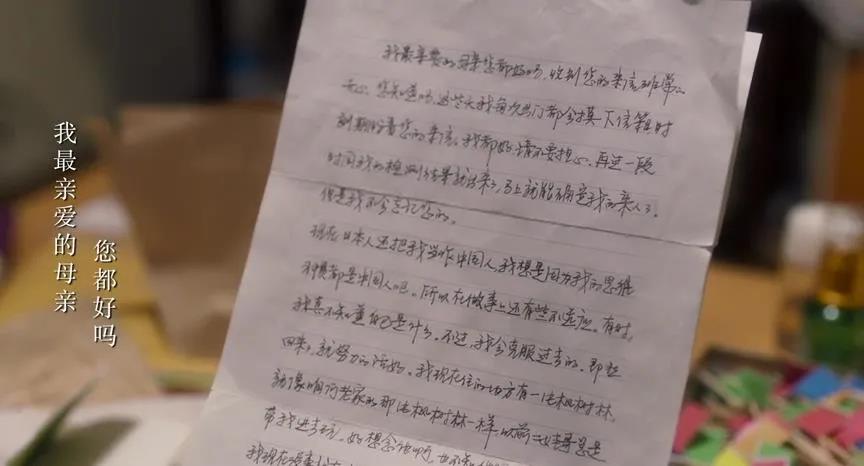 我最亲爱的母亲
您都好吗
我最亲爱的母亲您都好吗，收到您的来信非常
开心。您知道吗，这些天我每次出门都会摸一下信箱，时
刻期盼着您的来信。我都好，请不要担心。再过一段
时间我的检测结果就出来了，马上就能确定我的亲人了。
但是我不会忘记您的。
现在日本人还把我当作中国人，我想是因为我的思维
习惯都是中国人吧。所以在做事上还有些不适应。有时，
我真不知道自己是什么。不过，我会克服过去的。即然
回来了，就努力的活好。我现在住的地方有一片枫树林，
就像咱们老家的那片枫树林一样，以前
带我进去玩。好想念他们呢，也不知
我现在